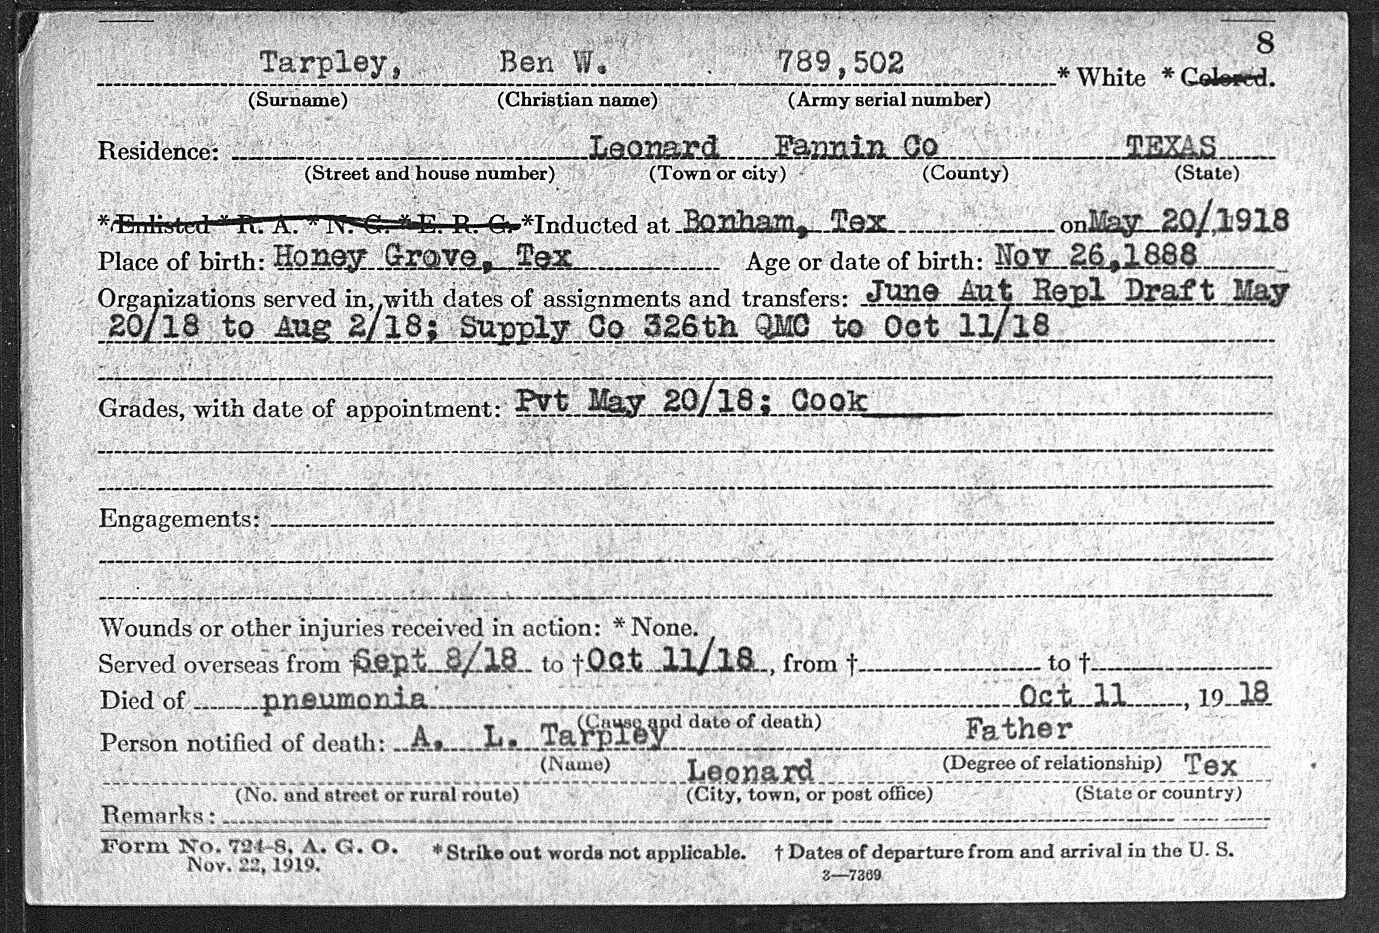 8
Tarpley, Ben W. 789,502 * White * Colored.
(Surname) (Christian name) (Army serial number)
Residence: Leonard Fannin Co TEXAS
(Street and house number) (Town or city) (County) (State)
*Enlisted * R. A. * N. G. * E. R. C. *Inducted at Bonham, Tex on May 20/1918
Place of birth: Honey Grove, Tex Age or date of birth: Nov 26,1888
Organizations served in, with dates of assignments and transfers: June Aut Repl Draft May
20/18 to Aug 2/18; Supply Co 326th QMC to Oct 11/18
Grades, with date of appointment: Pvt May 20/18; Cook
Engagements:
Wounds or other injuries received in action: * None.
Served overseas from † Sept 8/18 to † Oct 11/18, from † to †
Died of pneumonia Oct 11, 19 18
(Cause and date of death)
Person notified of death: A. L. Tarpley Father
(Name) (Degree of relationship)
Leonard Tex
(No. and street or rural route) (City, town, or post office) (State or country)
Remarks:
Form No. 724-8, A. G. O. * Strike out words not applicable. † Dates of departure from and arrival in the U. S.
Nov. 22, 1919. 3—7369